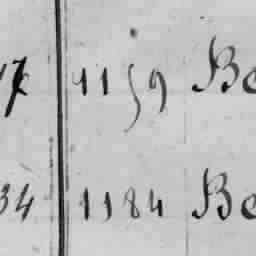 17 1159 Be
34 1184 Be